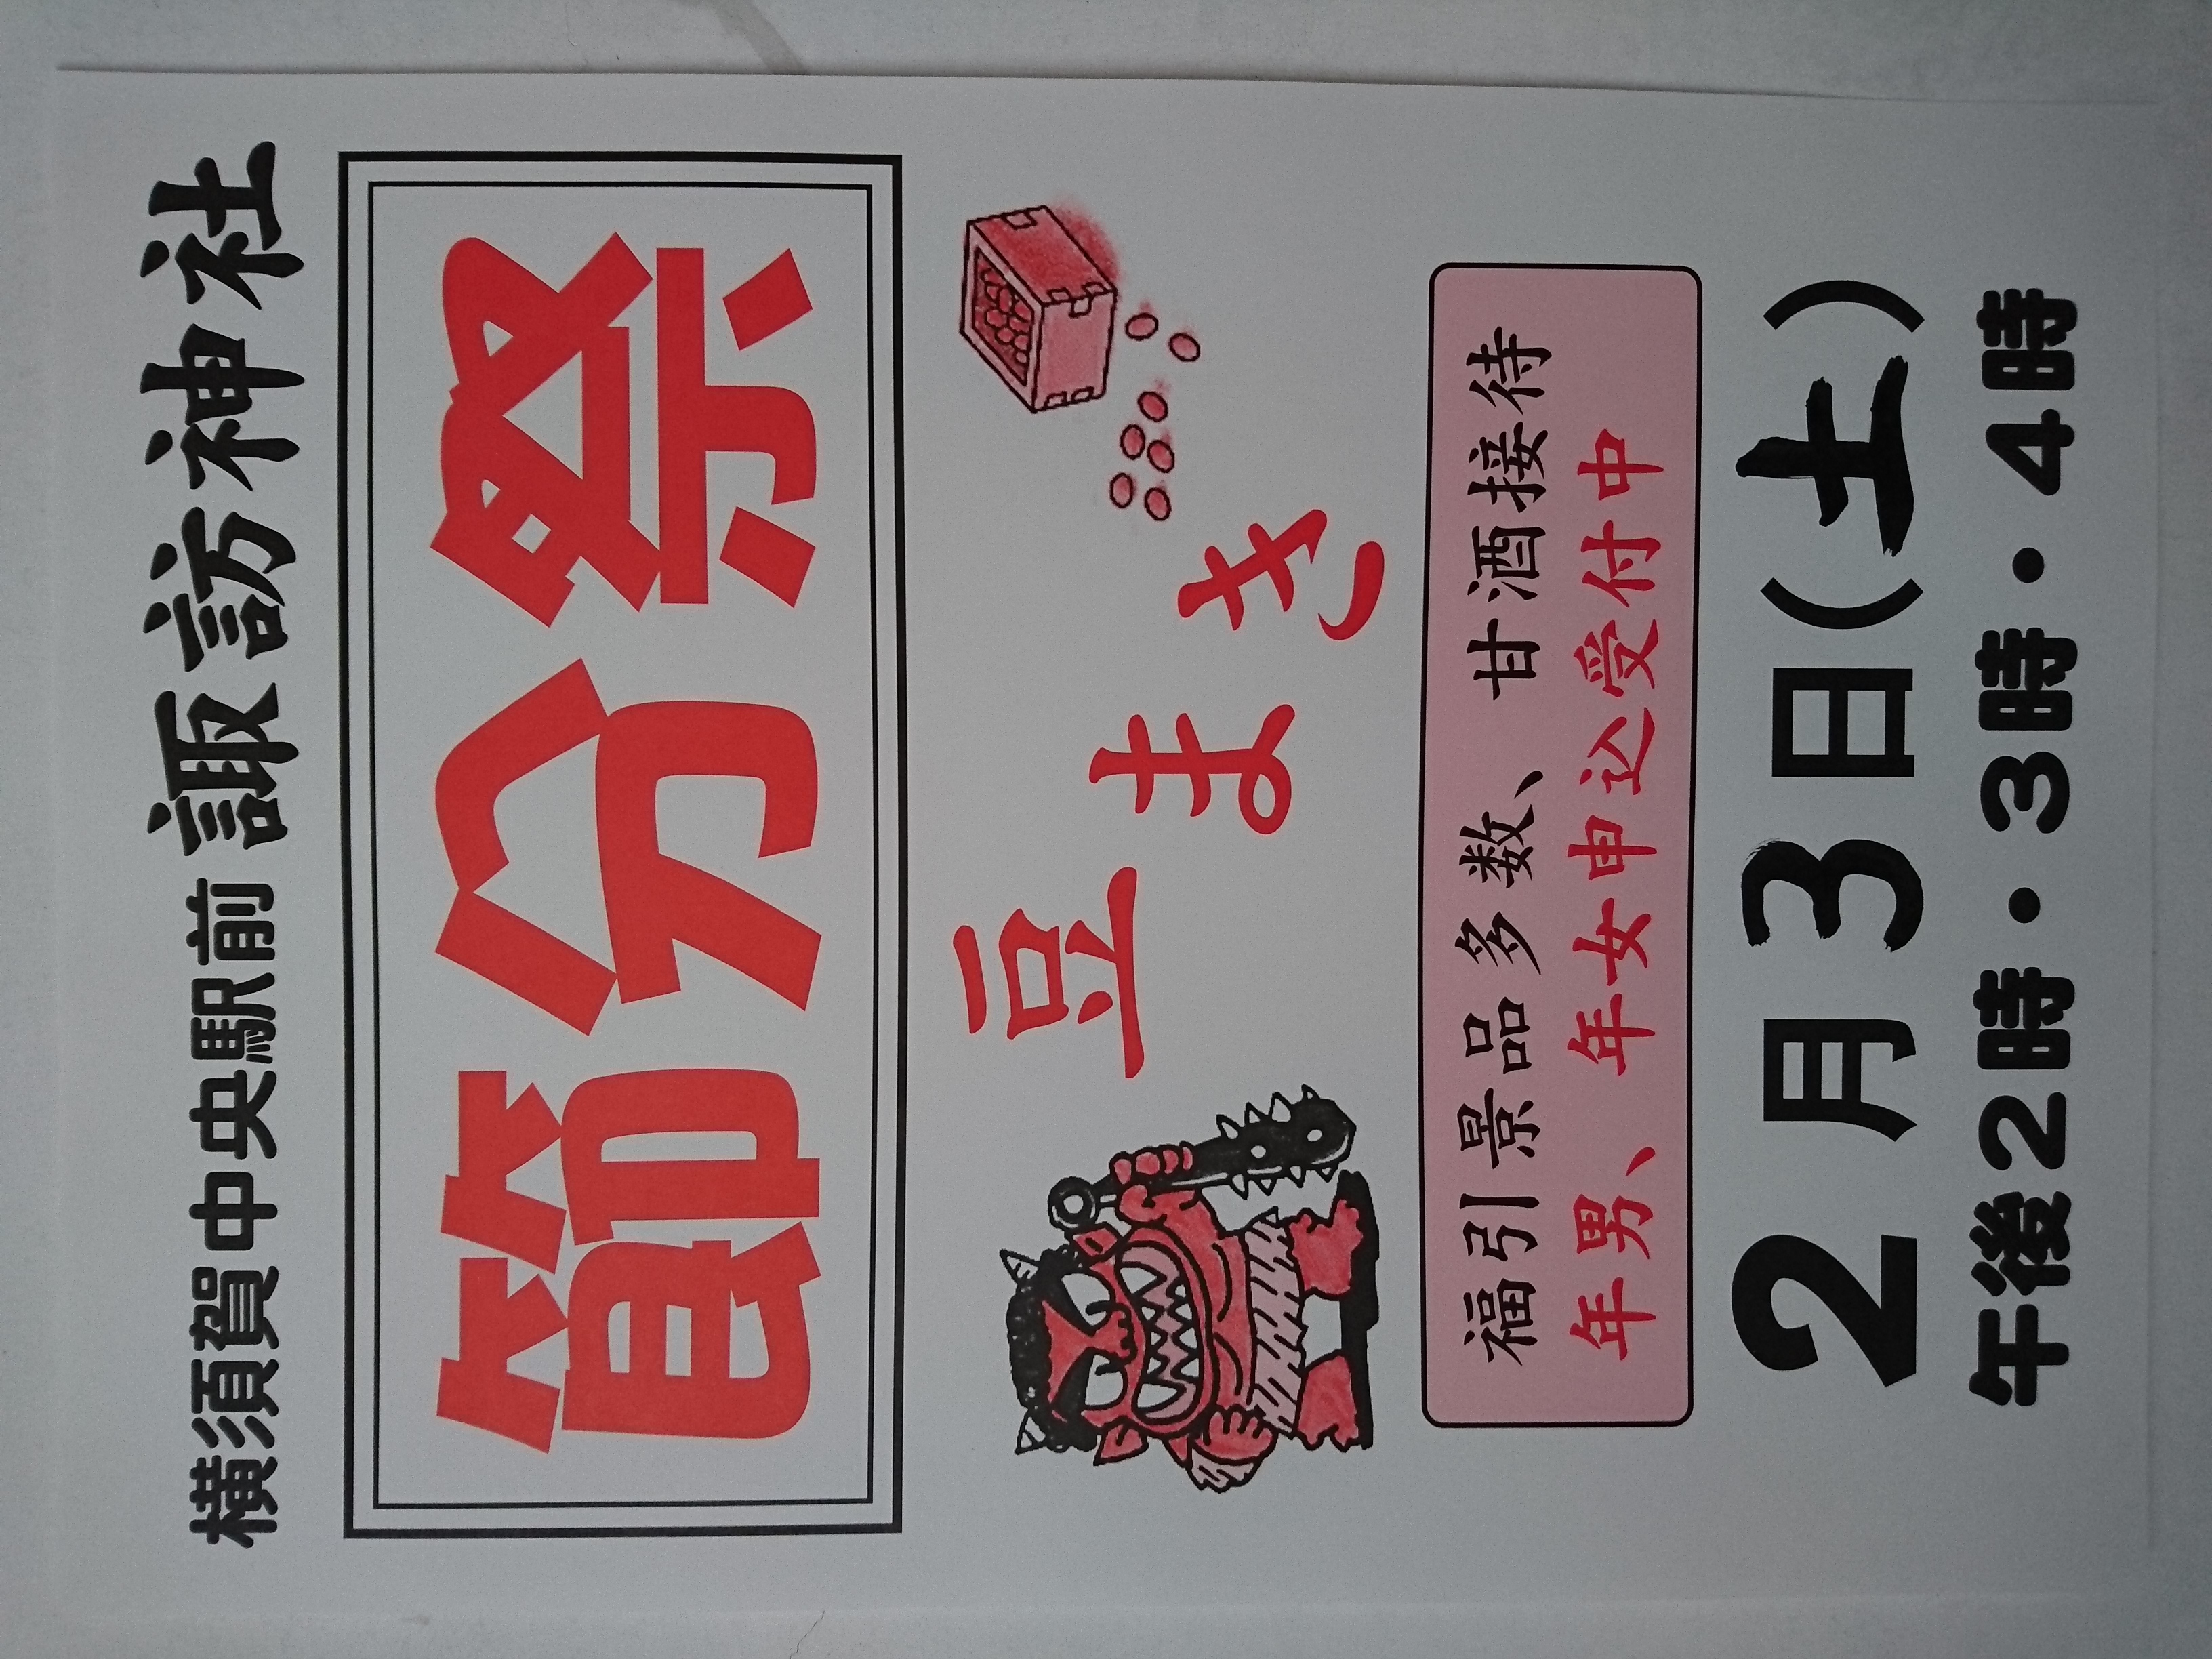 横須賀中央駅前 諏訪神社
節分祭
豆まき
福引景品多数、甘酒接待
年男、年女申込受付中
2月3日(土)
午後2時・3時・4時